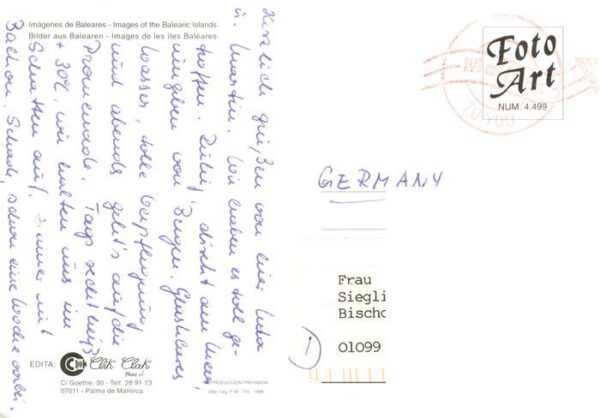 Imágenes de Baleares - Images of the Balearic Islands
Bilder aus Balearen - Images de les Iles Baléares
Herzlich grüßen von hier Jutta
u. Martin. Wir haben es toll ge-
troffen. Ruhig, direkt am Meer,
umgeben von Bergen, Glasklares
Wasser, tolle Verpflegung
und abends geht's auf die
Promenade. Tags recht heiß
+ 30°C, wir halten uns im
Schatten auf. Immer mit
Schade, schon eine Woche vorbei.
EDITA: Clik Clak
C/ Goethe, 30 - Telf. 28 91 13
07011 - Palma de Mallorca
REPRODUCCION PROHIBIDA
Dep. Leg. P.M. 1996
Foto
Art
NUM. 4.499
TO YOU
GERMANY
Frau
Siegli
Bischo
01099
D